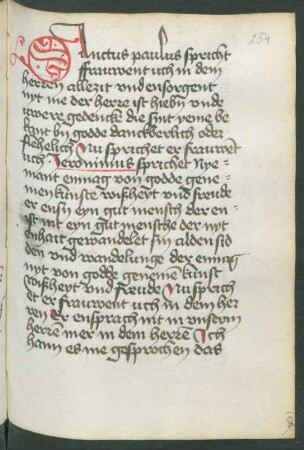 254
Sanctus paulus spricht
frauwent uch in dem
herren allezit vnd ensorgent
nyt me der herre ist hieby vnd
uwere gedencke die sint yeme be
kant by godde danckberlich oder
flehelich Nu sprichet er frauwet
uch Jeronimus sprichet nye=
mant enmag von godde gene=
men kunste wißheyt vnd freude
er ensy eyn gut mensch der en=
ist nit eyn gut mensche der nyt
enhait gewandelet sin alden sid
den vnd wandelunge der enmag
nyt von godde genemē kunst
wißheyt vnd freude Nu sprich
et er frauwent uch in dem her
ren Er ensprach nit in vnserm
herrē mer in dem herrē Ich
hann es me gesprochen das